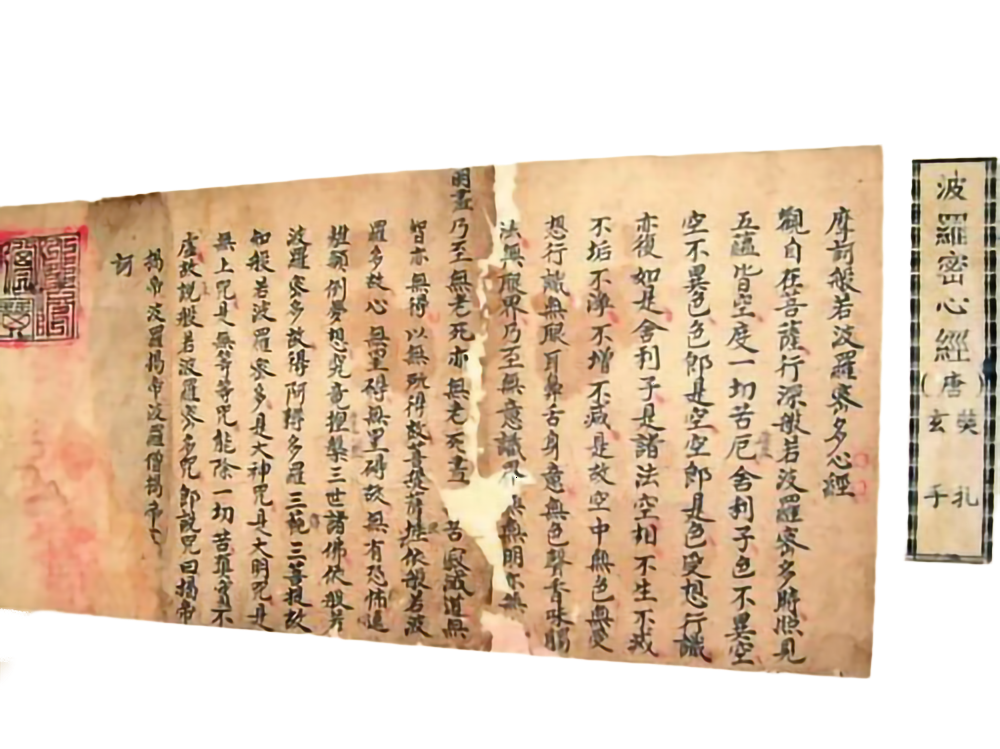 波羅密心經
(唐)
玄奘
手扎
摩訶般若波羅蜜多心經
觀自在菩薩行深般若波羅蜜多時照見
五蘊皆空度一切苦厄舍利子色不異空
空不異色色即是空空即是色受想行識
亦復如是舍利子是諸法空相不生不滅
不垢不淨不增不減是故空中無色無受
想行識無眼耳鼻舌身意無色聲香味觸
法無眼界乃至無意識界無無明亦無
明盡乃至無老死亦無老死盡苦寂滅道無
智亦無得以無所得故菩提薩埵依般若波
羅多故心無罣碍無罣碍故無有恐怖遠
離顛倒夢想究竟揑槃三世諸佛依般若
波羅蜜多故得阿耨多羅三藐三菩提故
知般若波羅蜜多是大神咒是大明咒是
無上咒是無等等咒能除一切苦真實不
虛故說般若波羅蜜多咒即說咒曰揭帝
揭帝波羅揭帝波羅僧揭帝
訶